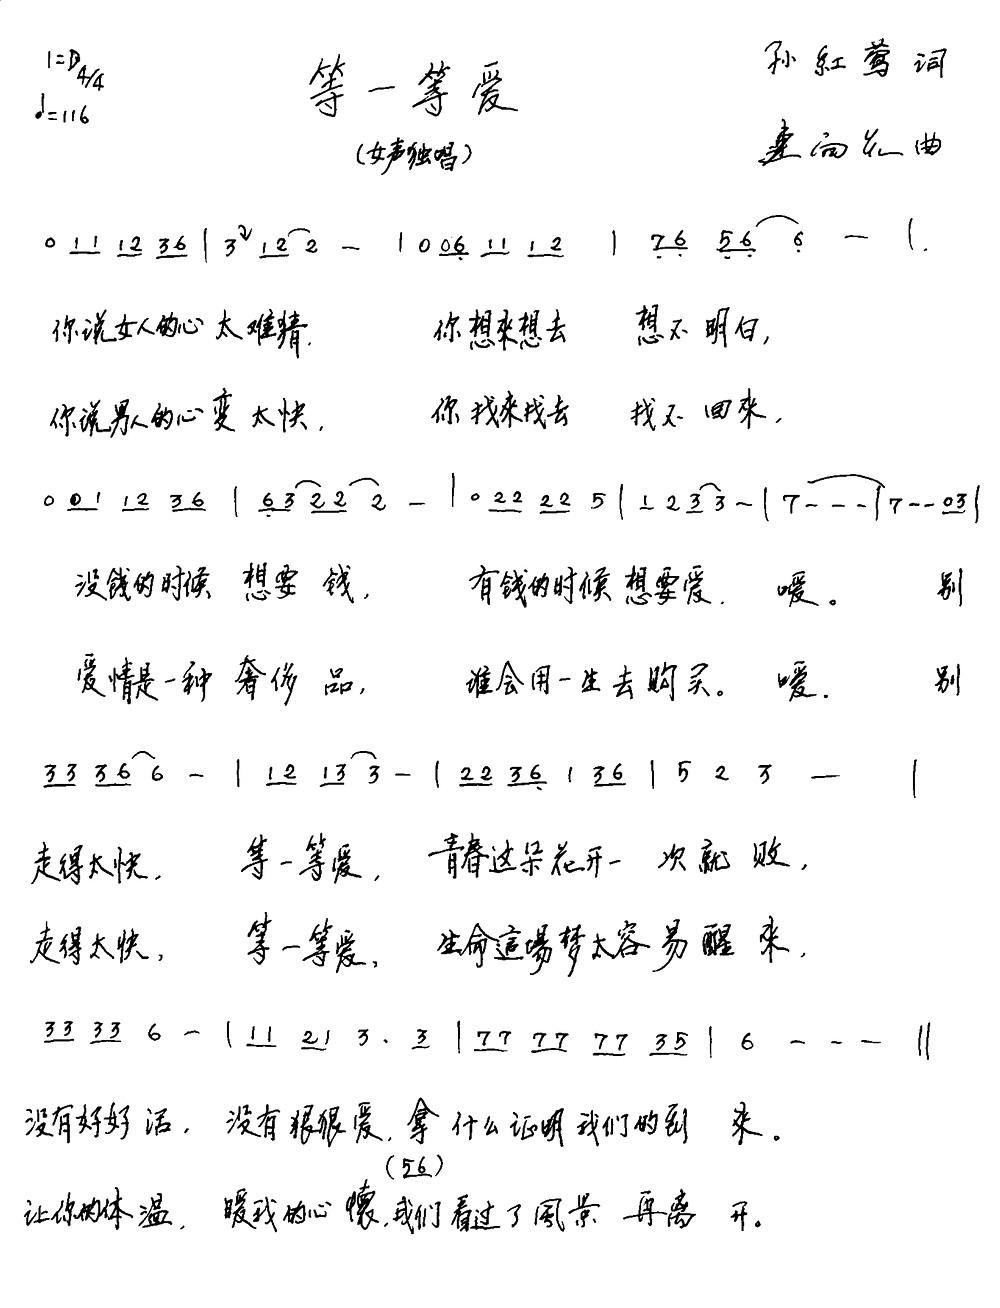 1=D 4/4
♩=116
等一等爱
(女声独唱)
孙紅莺 词
曲
0 11 12 36 | 3 12 2 － | 0 06 11 12 | 76 56 6 － |
你说女人的心太难猜, 你想來想去 想不明白,
你说男人的心变太快, 你找来找去 找不回来,
0 01 12 36 | 63 22 2 － | 0 22 22 5 | 1 2 3 3 － | 7 - - - | 7 - - 03 |
没钱的时候 想要钱, 有钱的时候想要爱, 嗳。 别
爱情是一种奢侈品, 谁会用一生去购买。 嗳. 别
33 36 6 － | 12 13 3 － | 22 36 1 36 | 5 2 3 － |
走得太快, 等一等爱, 青春这朵花开一次就败,
走得太快, 等一等爱, 生命這場梦太容易醒来,
33 33 6 － | 11 21 3 · 3 | 77 77 77 35 | 6 - - - ‖
没有好好活, 没有狠狠爱, 拿什么证明我们的到来。
(56)
让你的体温, 暖我的心懷, 我们看过了風景再离开。